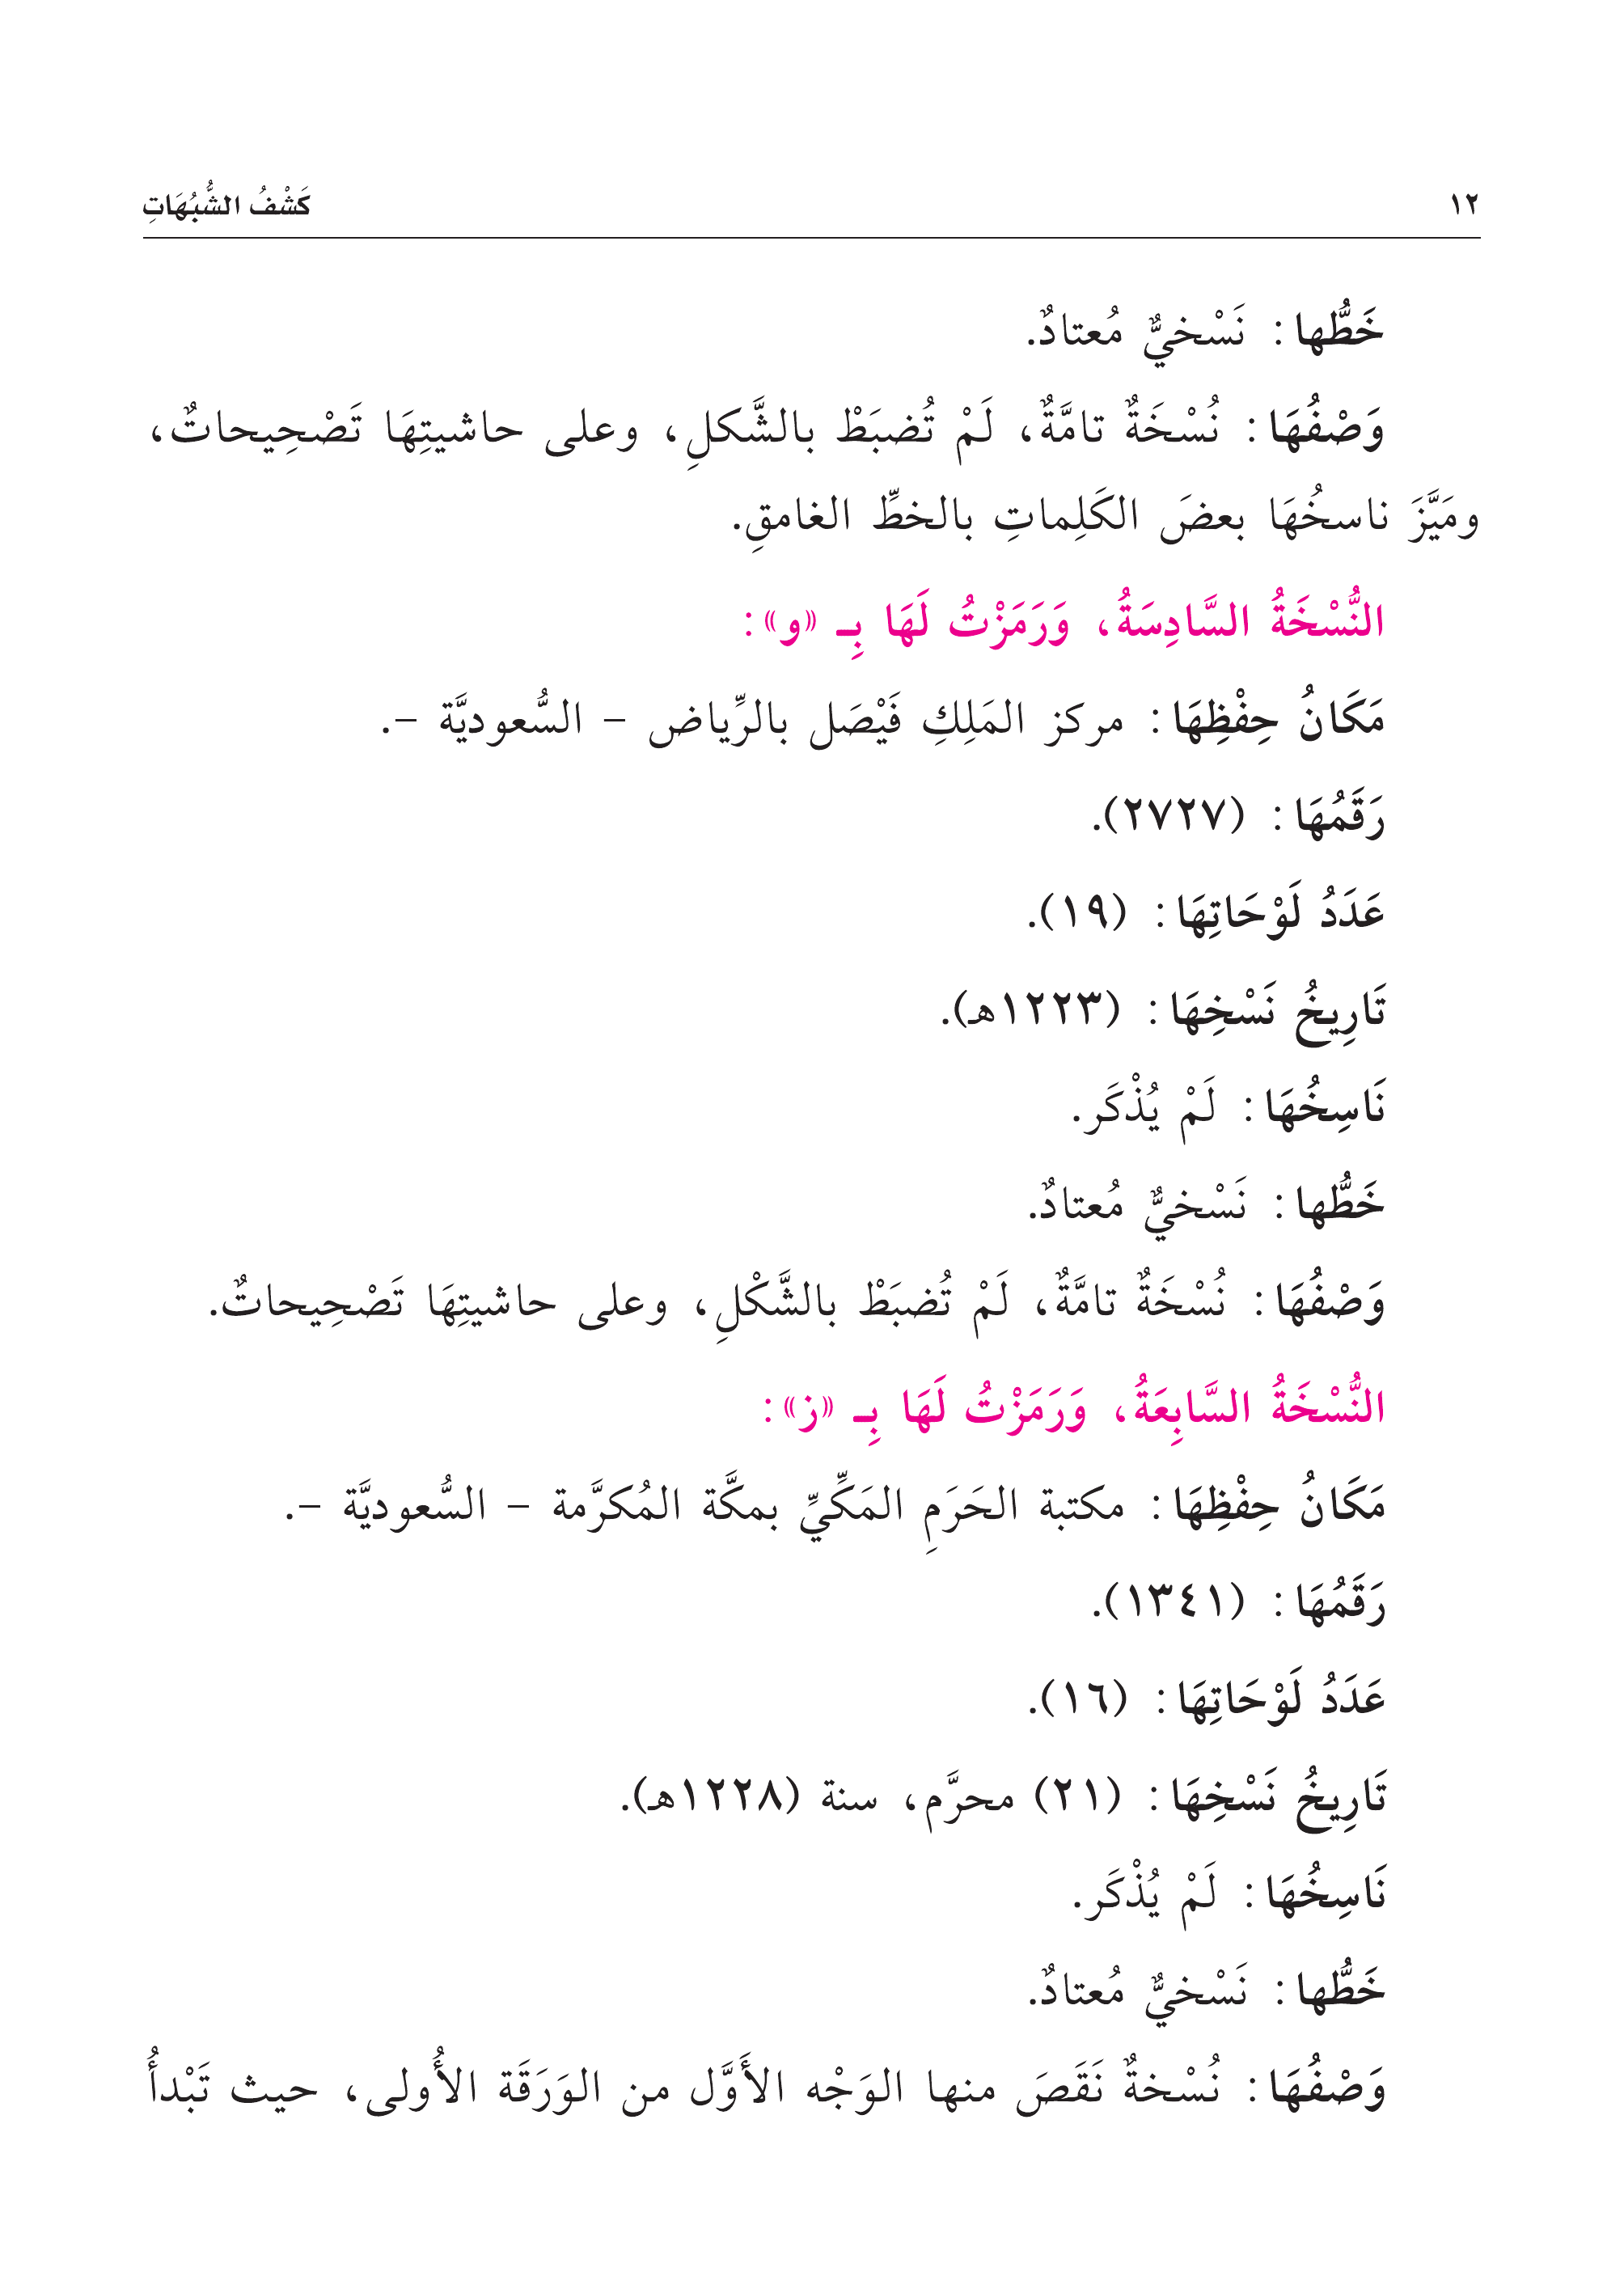 ١٢
كَشْفُ الشُّبُهَاتِ
خَطُّها: نَسْخيٌّ مُعتادٌ.
وَصْفُهَا: نُسْخَةٌ تامَّةٌ، لَمْ تُضبَطْ بالشَّكلِ، وعلى حاشيتِهَا تَصْحِيحاتٌ،
ومَيَّزَ ناسخُهَا بعضَ الكَلِماتِ بالخطِّ الغامقِ.
النُّسْخَةُ السَّادِسَةُ، وَرَمَزْتُ لَهَا بِـ «و»:
مَكَانُ حِفْظِهَا: مركز المَلِكِ فَيْصَل بالرِّياض – السُّعوديَّة –.
رَقَمُهَا: (٢٧٢٧).
عَدَدُ لَوْحَاتِهَا: (١٩).
تَارِيخُ نَسْخِهَا: (١٢٢٣هـ).
نَاسِخُهَا: لَمْ يُذْكَر.
خَطُّها: نَسْخيٌّ مُعتادٌ.
وَصْفُهَا: نُسْخَةٌ تامَّةٌ، لَمْ تُضبَطْ بالشَّكْلِ، وعلى حاشيتِهَا تَصْحِيحاتٌ.
النُّسْخَةُ السَّابِعَةُ، وَرَمَزْتُ لَهَا بِـ «ز»:
مَكَانُ حِفْظِهَا: مكتبة الحَرَمِ المَكِّيِّ بمكَّة المُكرَّمة – السُّعوديَّة –.
رَقَمُهَا: (١٣٤١).
عَدَدُ لَوْحَاتِهَا: (١٦).
تَارِيخُ نَسْخِهَا: (٢١) محرَّم، سنة (١٢٢٨هـ).
نَاسِخُهَا: لَمْ يُذْكَر.
خَطُّها: نَسْخيٌّ مُعتادٌ.
وَصْفُهَا: نُسْخةٌ نَقَصَ منها الوَجْه الأَوَّل من الوَرَقَة الأُولى، حيث تَبْدأُ